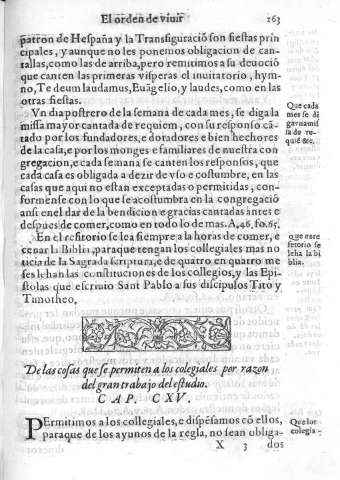 El orden de viuir 263
patron de Hespaña y la Transfiguraciõ son fiestas prin
cipales, y aunque no les ponemos obligacion de can-
tallas, como las de arriba, pero remitimos a su deuociõ
que canten las primeras visperas el inuitatorio, hym-
no, Te deum laudamus, Euãgelio, y laudes, como en las
otras fiestas.
Vn dia postrero de la semana de cada mes, se diga la
missa mayor cantada de requiem, con su responso cã-
tado por los fundadores, e dotadores e bien hechores
de la casa, e por los monges e familiares de nuestra con
gregacion, e cada semana se canten los responsos, que
cada casa es obligada a dezir de vso e costumbre, en las
casas que aqui no estan exceptadas o permitidas, con-
formense con lo que se acostumbra en la congregaciõ
ansi en el dar de la bendicion e gracias cantadas antes e
despues de comer, como en todo lo de mas. A, 46, fo. 65.
En el refitorio se lea siempre a la horas de comer, e
cenar la Biblia, paraque tengan los collegiales mas no
ticia de la Sagrada scriptura, e de quatro en quatro me
ses se lehan las constituciones de los collegios, y las Epi-
stolas que escriuio Sant Pablo a sus discipulos Tito y
Timotheo.
Que cada
mes se di
ga vna mis
sa de re-
quiẽ &c.
que en re
fetorio se
leha la bi
blia.
De las cosas que se permiten a los colegiales por razon
del gran trabajo del estudio.
CAP. CXV.
PErmitimos a los collegiales, e dispẽsamos cõ ellos,
paraque de los ayunos de la regla, no sean obliga-
Que los
colegia-
X 3 dos